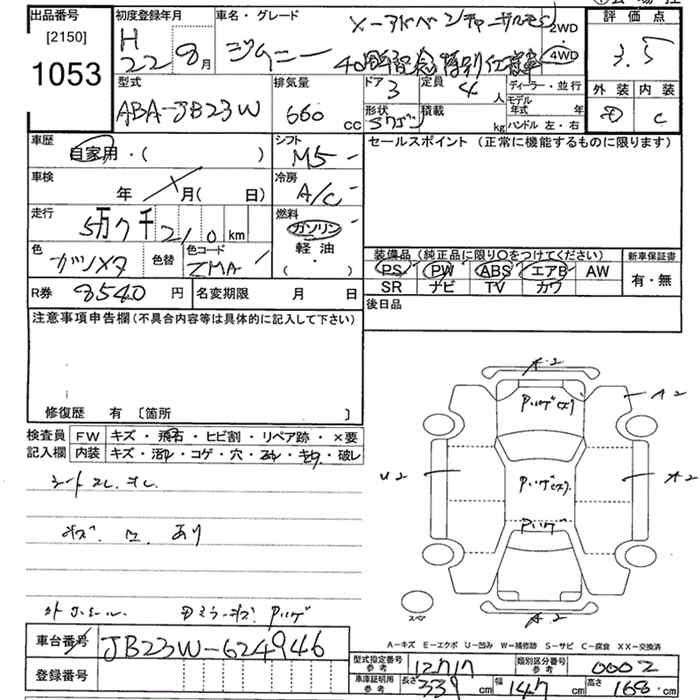 出品番号
[2150]
1053
初度登録年月
H
22 8月
車名・グレード
ジムニー
X-アドベンチャーサルモン
40周年記念特別仕様車
2WD
4WD
評価点
3.5
外装 内装
D C
型式
ABA-JB23W
排気量
660
cc
ドア
3
定員
4
人
ディーラー・並行
モデル
年式 年
ハンドル 左・右
形状
積載
kg
車歴
自家用・( )
シフト
M5
セールスポイント (正常に機能するものに限ります)
車検
年 月( 日)
冷房
A/C
走行
5万7千210km
燃料
ガソリン
軽油
( )
色
ガンメタ
色替
色コード
ZMA
装備品 (純正品に限り○をつけてください)
PS PW ABS エアB AW
SR ナビ TV カワ
新車保証書
有・無
R券 8540円
名変期限 月 日
後日品
注意事項申告欄 (不具合内容等は具体的に記入して下さい)
修復歴 有 〔箇所 〕
検査員
記入欄
FW キズ・飛石・ヒビ割・リペア跡・×要
内装 キズ・汚レ・コゲ・穴・ヌレ・キレ・破レ
シートスレ、オレ
キズ、凹、あり
A-2
A2
U2
A2
A-2
スペア
A-キズ E-エクボ U-凹み W-補修跡 S-サビ C-腐食 XX-交換済
車台番号 JB23W-624946
登録番号
型式指定番号
参考
12717
類別区分番号
参考
0002
車庫証明用
参考
長さ 339cm
幅 147cm
高さ 168cm